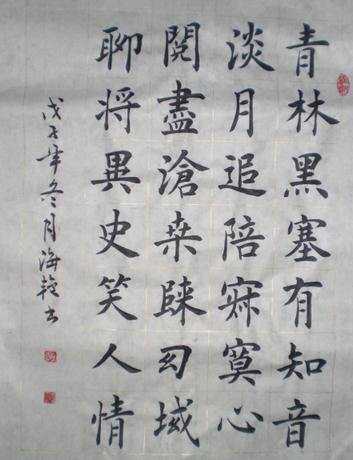 青林黑塞有知音
淡月追陪寂寞心
閱盡滄桒幻域
聊将異史笑人情
戊子年冬月海书